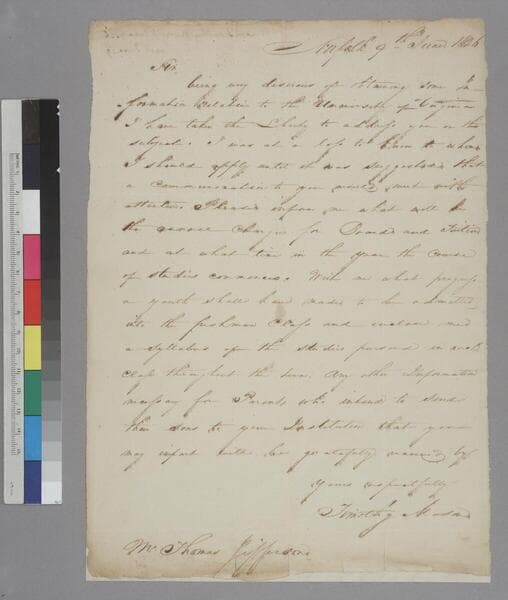 Norfolk 9th June 1826
Sir,
being very desirous of obtaining some In-
formation relative to the University of Virginia
I have taken the Liberty to address you on this
subject. I was at a loss to know to whom
I should apply until it was suggested that
a communication to you would meet with
attention. Please inform me what will be
the charges for Board and tuition
and at what time in the year the course
of studies commences. With me what progress
a youth shall have made to be admitted
into the freshman Class and enclose me
a syllabus of the studies pursued in each
Class throughout the term. Any other Information
necessary for Parents who intend to send
their sons to your Institution that you
may impart will be gratefully received by
Yours respectfully
Timothy
Mr Thomas Jefferson